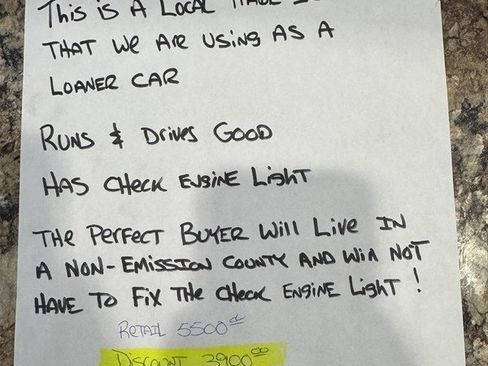 This is A Local
THAT We Are Using As A
Loaner CAR
Runs & Drives Good
Has Check Engine Light
The Perfect Buyer Will Live In
A Non-Emission County And Will Not
Have To Fix The Check Engine Light !
Retail 5500
Discount 3900⁰⁰